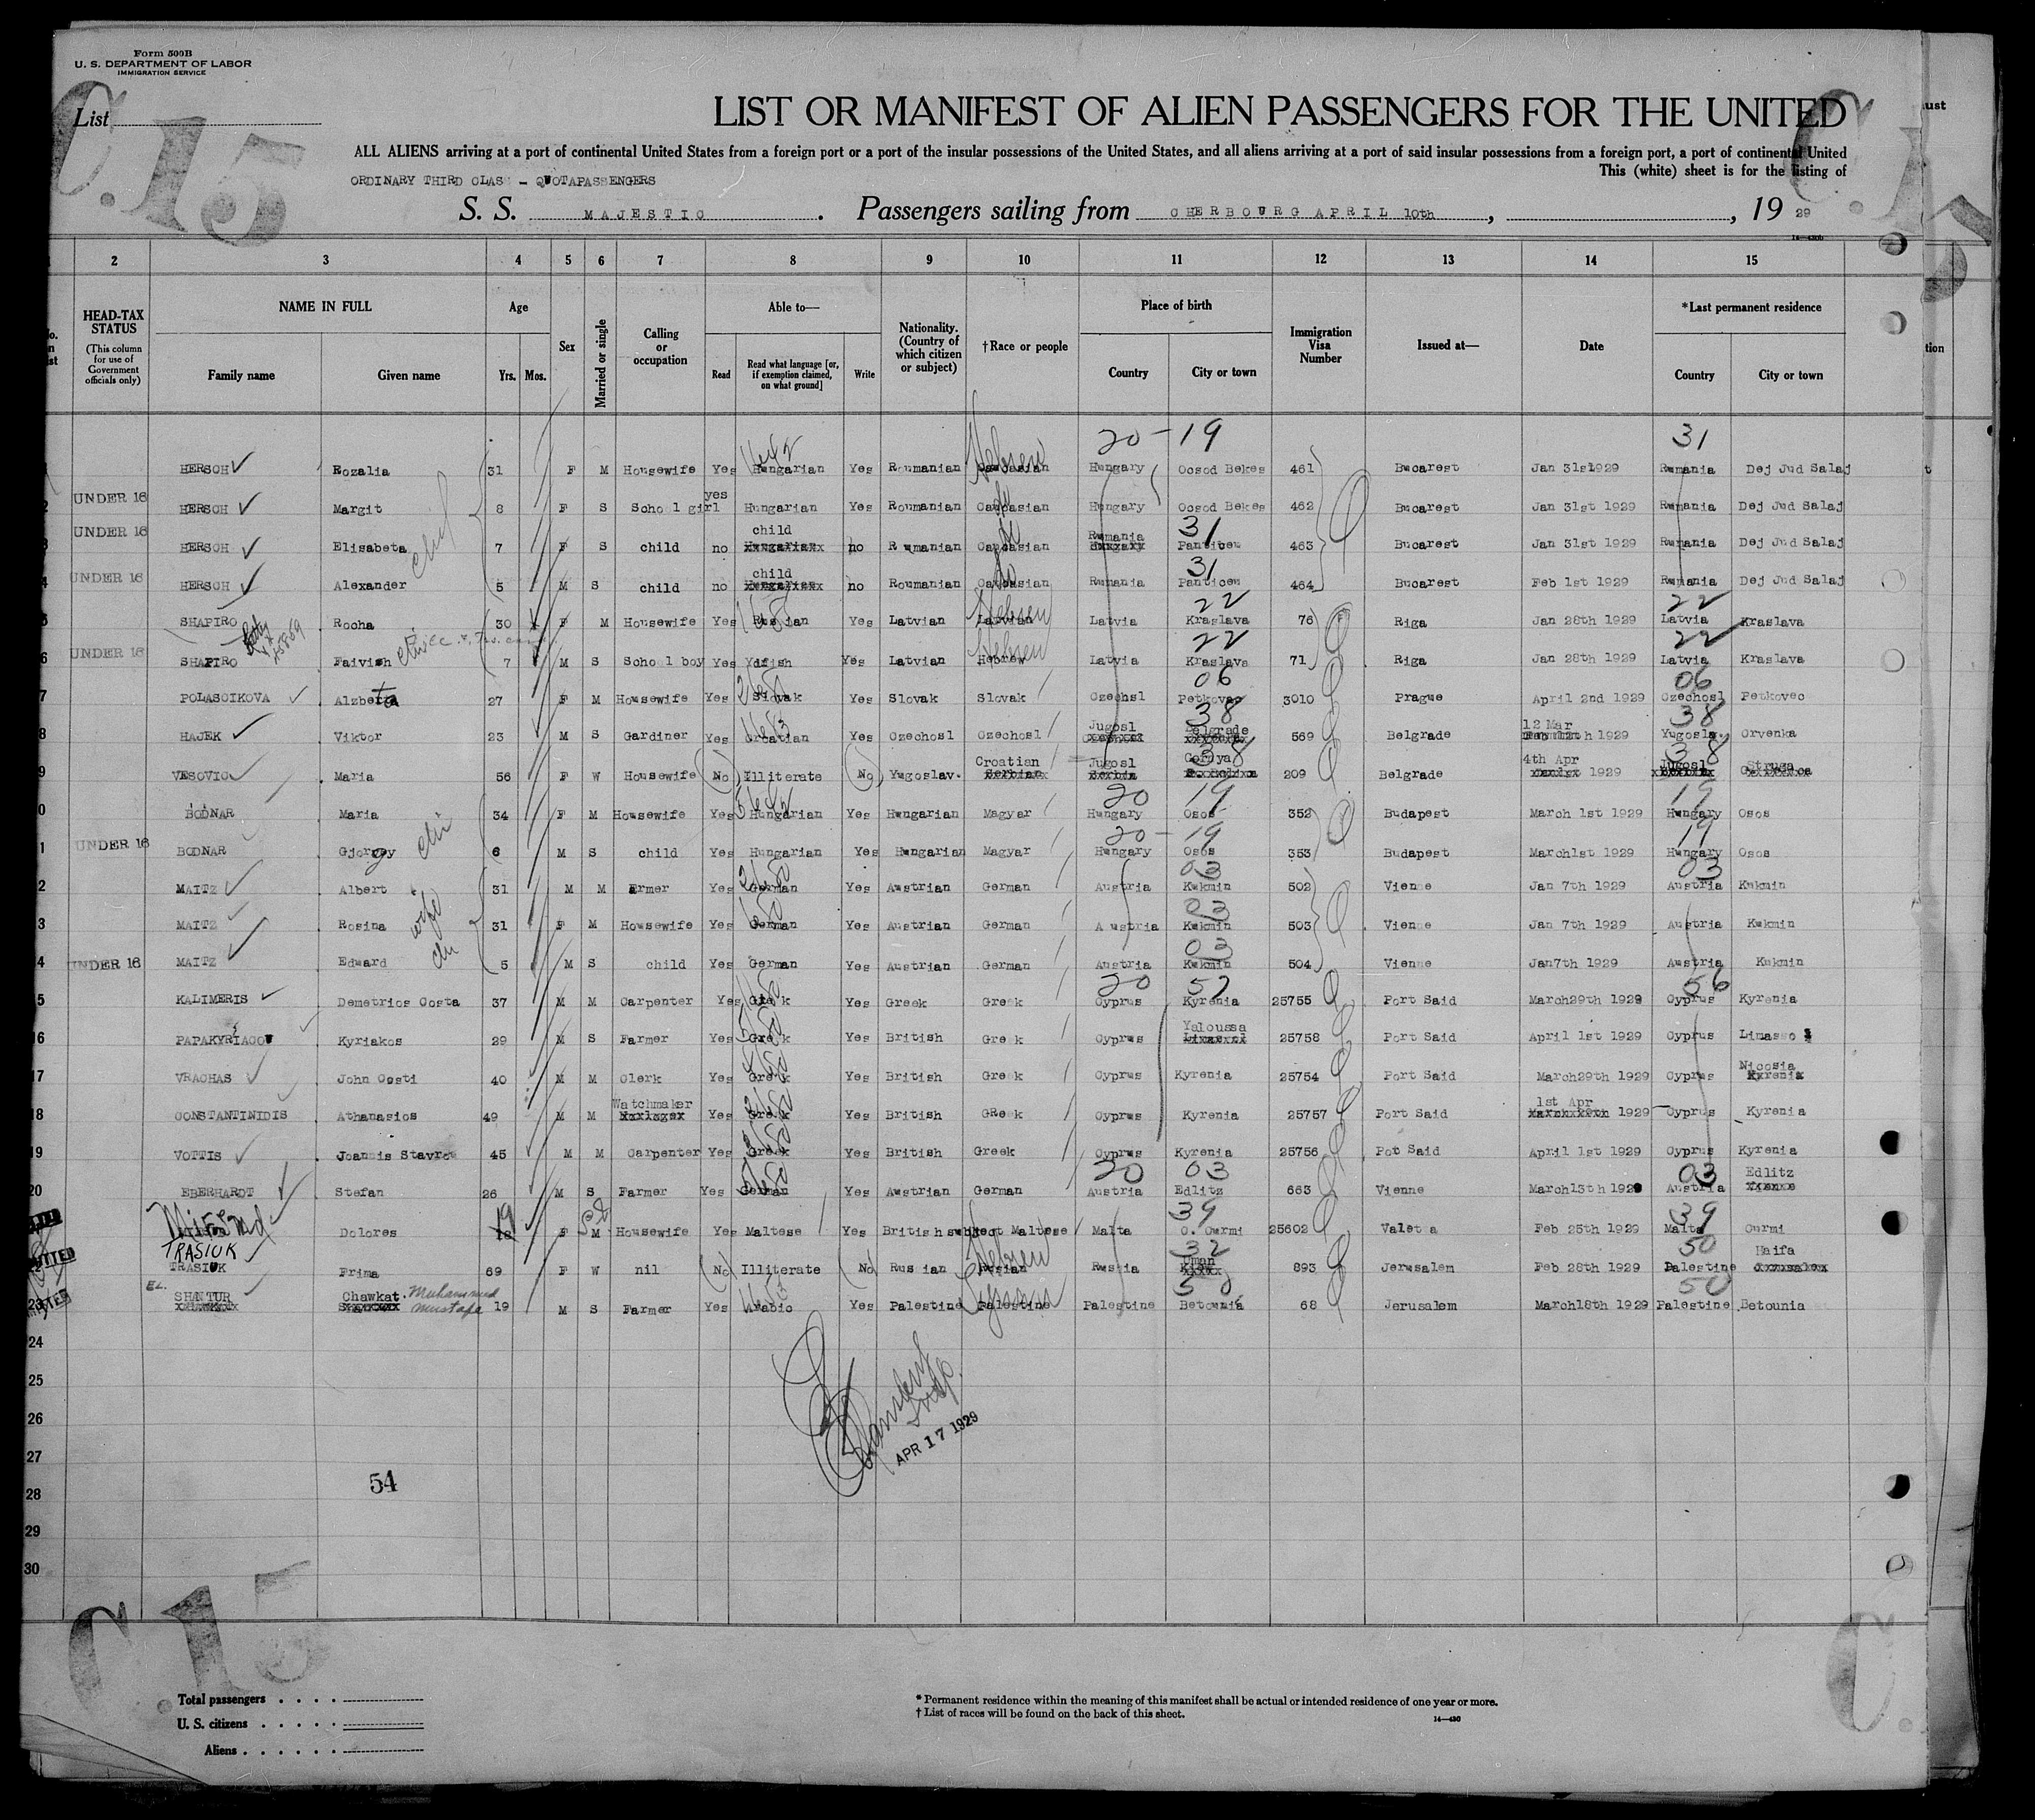 Form 500B
U. S. DEPARTMENT OF LABOR
IMMIGRATION SERVICE
C.15
List
LIST OR MANIFEST OF ALIEN PASSENGERS FOR THE UNITED
ALL ALIENS arriving at a port of continental United States from a foreign port or a port of the insular possessions of the United States, and all aliens arriving at a port of said insular possessions from a foreign port, a port of continental United
ORDINARY THIRD CLAS - QUOTAPASSENGERS This (white) sheet is for the listing of
S. S. MAJESTIC. Passengers sailing from CHERBOURG APRIL 10th, , 19 29
2 3 4 5 6 7 8 9 10 11 12 13 14 15
HEAD-TAX STATUS (This column for use of Government officials only) NAME IN FULL Family name Given name Age Yrs. Mos. Sex Married or single Calling or occupation Able to— Read Read what language [or, if exemption claimed, on what ground] Write Nationality. (Country of which citizen or subject) †Race or people Place of birth Country City or town Immigration Visa Number Issued at— Date *Last permanent residence Country City or town
20-19 31
HERSCH Rozalia 31 F M Housewife Yes Hungarian Yes Roumanian Hebrew Hungary Ocsod Bekes 461 Bucarest Jan 31st1929 Rumania Dej Jud Salaj
UNDER 16 HERSCH Margit 8 F S School girl yes Hungarian Yes Roumanian Caucasian do Hungary Ocsod Bekes 462 Bucarest Jan 31st 1929 Rumania Dej Jud Salaj
UNDER 16 HERSCH Elisabeta 7 F S child no child no Rumanian Caucasian do Rumania 31 Panticeu 463 Bucarest Jan 31st 1929 Rumania Dej Jud Salaj
UNDER 16 HERSCH Alexander 5 M S child no child no Roumanian Caucasian do Rumania 31 Panticeu 464 Bucarest Feb 1st 1929 Rumania Dej Jud Salaj
SHAPIRO Rocha 30 F M Housewife Yes Russian Yes Latvian Latvian Hebrew Latvia 22 Kraslava 76 Riga Jan 28th 1929 22 Latvia Kraslava
UNDER 16 SHAPIRO Faivish 7 M S School boy Yes Yddish Yes Latvian Hebrew Latvia 22 Kraslava 71 Riga Jan 28th 1929 22 Latvia Kraslava
POLASCIKOVA Alzbeta 27 F M Housewife Yes Slovak Yes Slovak Slovak Czechsl 06 Petkovec 3010 Prague April 2nd 1929 06 Czechosl Petkovec
HAJEK Viktor 23 M S Gardiner Yes Croatian Yes Czechosl Czechosl Jugosl 38 Belgrade 569 Belgrade 12 Mar 1929 38 Yugosla Crvenka
VESOVIC Maria 56 F W Housewife No Illiterate No Yugoslav. Croatian Jugosl 38 209 Belgrade 4th Apr 1929 38 Jugosl Struga
BODNAR Maria 34 F M Housewife Yes Hungarian Yes Hungarian Magyar 20 Hungary 19 Osos 352 Budapest March 1st 1929 19 Hungary Osos
UNDER 16 BODNAR Gjorgy 6 M S child Yes Hungarian Yes Hungarian Magyar 20- Hungary 19 Osos 353 Budapest March1st 1929 19 Hungary Osos
MAITZ Albert 31 M M Ermer Yes German Yes Austrian German Austria 03 Kukmin 502 Vienne Jan 7th 1929 03 Austria Kukmin
MAITZ Rosina wife 31 F M Housewife Yes German Yes Austrian German Austria 03 Kukmin 503 Vienne Jan 7th 1929 Austria Kukmin
UNDER 16 MAITZ Edward 5 M S child Yes German Yes Austrian German Austria 03 Kukmin 504 Vienne Jan7th 1929 Austria Kukmin
KALIMERIS Demetrios Costa 37 M M Carpenter Yes Greek Yes Greek Greek 20 Cyprus 57 Kyrenia 25755 Port Said March29th 1929 56 Cyprus Kyrenia
16 PAPAKYRIACOU Kyriakos 29 M S Farmer Yes Greek Yes British Greek Cyprus Yaloussa 25758 Port Said April 1st 1929 Cyprus Limasso
17 VRACHAS John Costi 40 M M Clerk Yes Greek Yes British Greek Cyprus Kyrenia 25754 Port Said March29th 1929 Cyprus Nicosia
18 CONSTANTINIDIS Athanasios 49 M M Watchmaker Yes Greek Yes British GReek Cyprus Kyrenia 25757 Port Said 1st Apr 1929 Cyprus Kyrenia
19 VOTTIS Joannis Stavro 45 M M Carpenter Yes Greek Yes British Greek Cyprus Kyrenia 25756 Pot Said April 1st 1929 Cyprus Kyrenia
20 EBERHARDT Stefan 26 M S Farmer Yes German Yes Austrian German 20 Austria 03 Edlitz 663 Vienne March13th 1929 03 Austria Edlitz
Dolores 19 F M Housewife Yes Maltese Yes British subject Maltese Malta 39 C. Curmi 25602 Valet a Feb 25th 1929 39 Malta Curmi
TRASIUK
TRASIUK Frima 69 F W nil No Illiterate No Rus ian Hebrew Russia 32 Uman 893 Jerusalem Feb 28th 1929 50 Palestine Haifa
23 EL. SHANTUR Chawkat. Muhammed Mustapa 19 M S Farmer Yes Arabic Yes Palestine Palestine Syrian Palestine 50 Betounia 68 Jerusalem March18th 1929 50 Palestine Betounia
24
25
26
27
28
29
30
APR 17 1929
54
C.15
C.
Total passengers
U. S. citizens
Aliens
* Permanent residence within the meaning of this manifest shall be actual or intended residence of one year or more.
† List of races will be found on the back of this sheet.
14—430